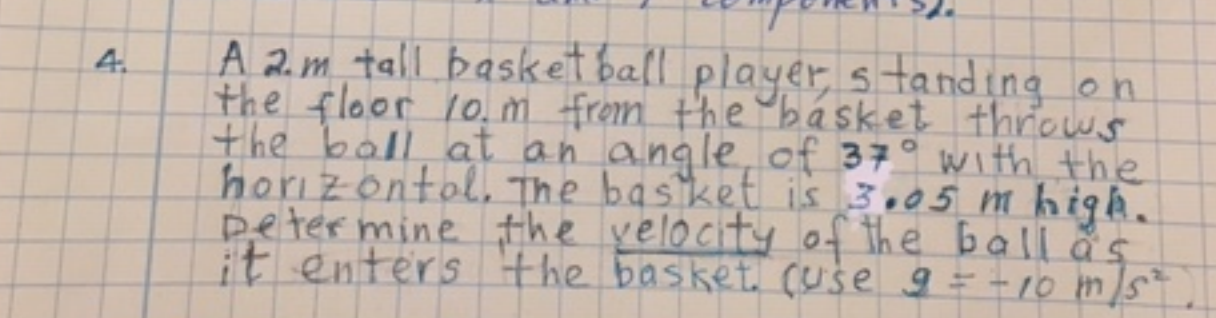 components).
4. A 2.m tall basketball player, standing on
the floor 10.m from the basket throws
the ball at an angle of 37° with the
horizontal. The basket is 3.05 m high.
Determine the velocity of the ball as
it enters the basket. (use g = -10 m/s².